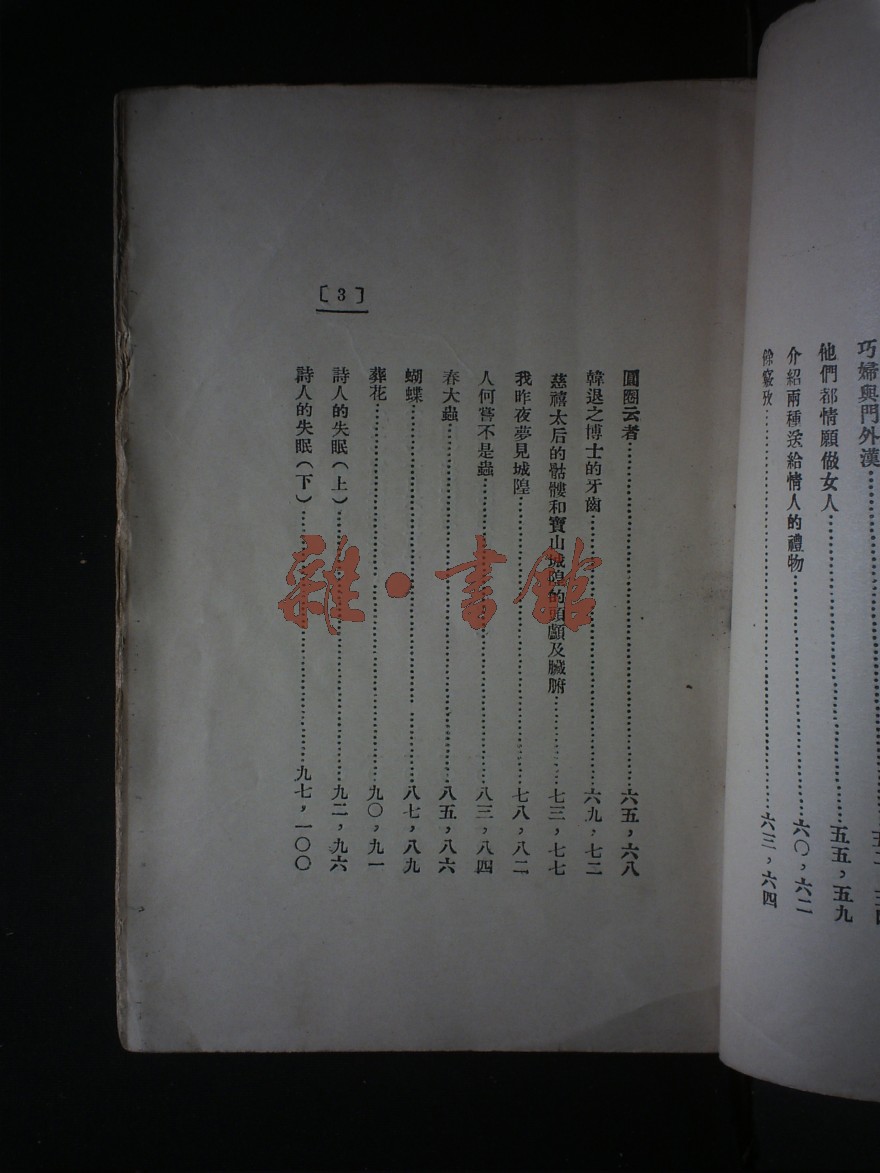 巧婦與門外漢
他們都情願做女人……五五，五九
介紹兩種送給情人的禮物……六〇，六二
……六三，六四
圓圈云者……六五，六八
韓退之博士的牙齒……六九，七二
慈禧太后的骷髏和寶山城隍的頭顱及臟腑……七三，七七
我昨夜夢見城隍……七八，八二
人何嘗不是蟲……八三，八四
春大蟲……八五，八六
蝴蝶……八七，八九
葬花……九〇，九一
詩人的失眠（上）……九二，九六
詩人的失眠（下）……九七，一〇〇
〔3〕
雜·書館